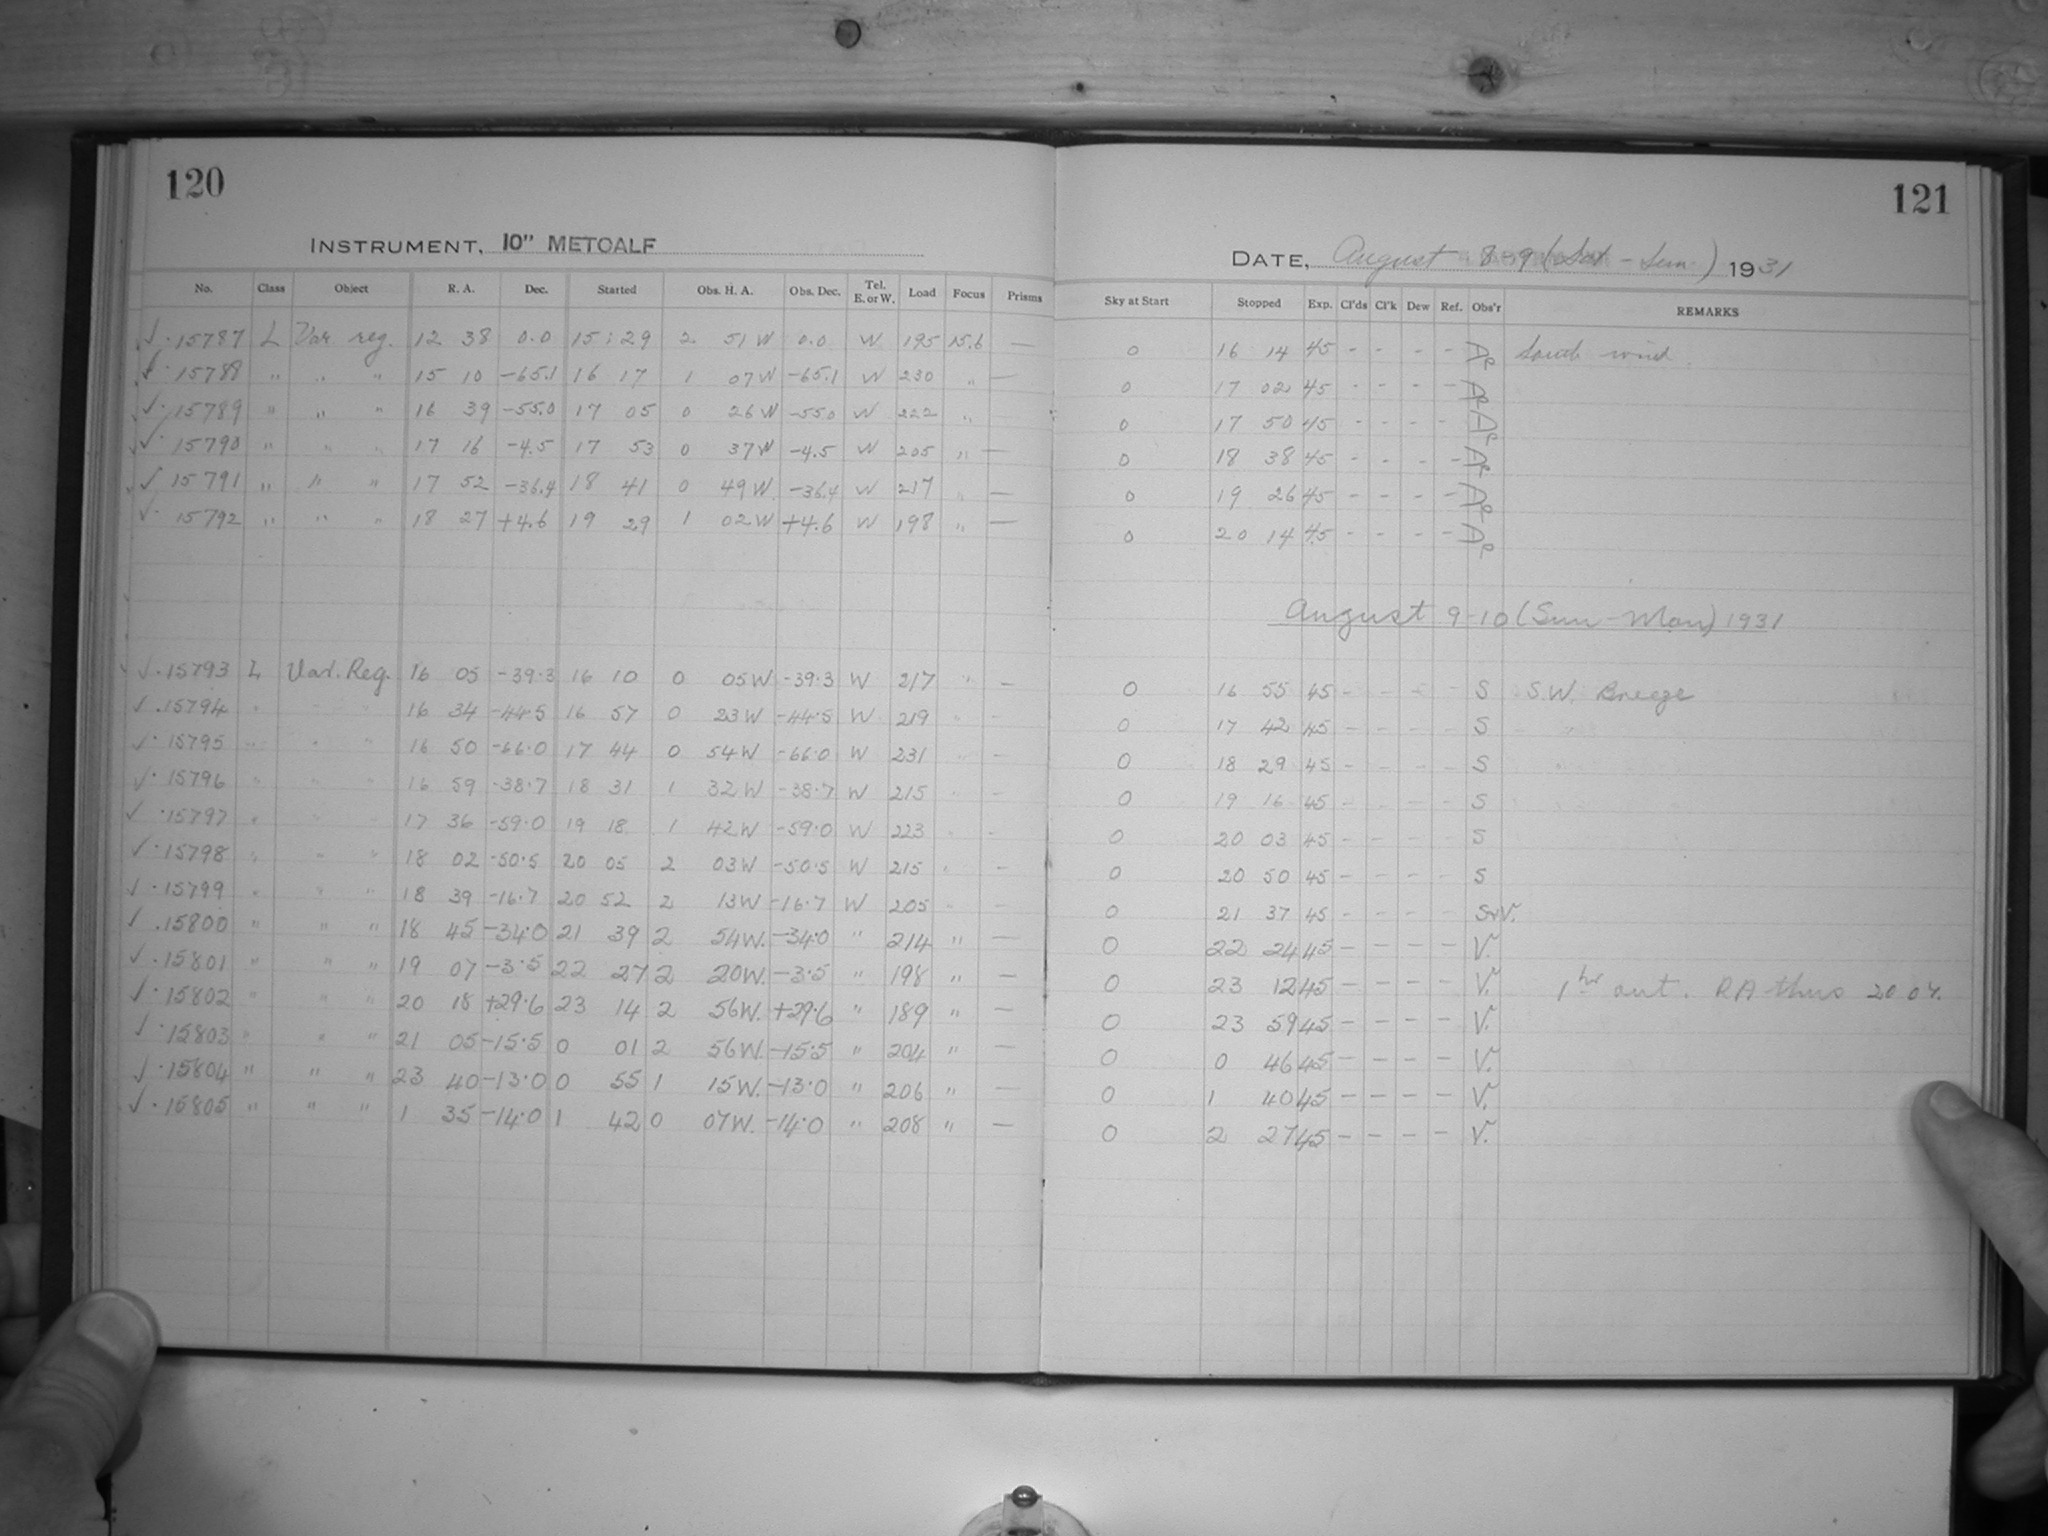 120
INSTRUMENT, 10" METCALF
No. Class Object R. A. Dec. Started Obs. H. A. Obs. Dec. Tel. E. or W. Load Focus Prisms
✓ · 15787 L Var. reg. 12 38 0.0 15 : 29 2 51 W 0.0 W 195 15.6 —
✓ · 15788 " " " 15 10 -65.1 16 17 1 07 W -65.1 W 230 " —
✓ · 15789 " " " 16 39 -55.0 17 05 0 26 W -55.0 W 222 "
✓ · 15790 " " " 17 16 -4.5 17 53 0 37 W -4.5 W 205 " —
✓ 15791 " " " 17 52 -36.4 18 41 0 49 W. -36.4 W 217 " —
✓ · 15792 " " " 18 27 +4.6 19 29 1 02 W +4.6 W 198 " —
✓ · 15793 L Var. Reg. 16 05 -39.3 16 10 0 05 W -39.3 W 217 " —
✓ . 15794 " " " 16 34 -44.5 16 57 0 23 W -44.5 W 219 " —
✓ · 15795 " " " 16 50 -66.0 17 44 0 54 W -66.0 W 231 " —
✓ · 15796 " " " 16 59 -38.7 18 31 1 32 W -38.7 W 215 " —
✓ · 15797 " " " 17 36 -59.0 19 18 1 42 W -59.0 W 223 " —
✓ · 15798 " " " 18 02 -50.5 20 05 2 03 W -50.5 W 215 " —
✓ · 15799 " " " 18 39 -16.7 20 52 2 13 W -16.7 W 205 " —
✓ . 15800 " " " 18 45 -34.0 21 39 2 54 W. -34.0 " 214 " —
✓ · 15801 " " " 19 07 -3.5 22 27 2 20 W. -3.5 " 198 " —
✓ · 15802 " " " 20 18 +29.6 23 14 2 56 W. +29.6 " 189 " —
✓ · 15803 " " " 21 05 -15.5 0 01 2 56 W. -15.5 " 204 " —
✓ · 15804 " " " 23 40 -13.0 0 55 1 15 W. -13.0 " 206 " —
✓ · 15805 " " " 1 35 -14.0 1 42 0 07 W. -14.0 " 208 " —
121
DATE, August 8-9 (Sat - Sun) 1931
Sky at Start Stopped Exp. Cl'ds Cl'k Dew Ref. Obs'r REMARKS
0 16 14 45 - - - - AP South wind.
0 17 02 45 - - - - AP
0 17 50 45 - - - - AP
0 18 38 45 - - - - AP
0 19 26 45 - - - - AP
0 20 14 45 - - - - AP
August 9-10 (Sun - Mon) 1931
0 16 55 45 - - - - S S.W. Breeze
0 17 42 45 - - - - S "
0 18 29 45 - - - - S "
0 19 16 45 - - - - S
0 20 03 45 - - - - S
0 20 50 45 - - - - S
0 21 37 45 - - - - S+V.
0 22 24 45 - - - - V.
0 23 12 45 - - - - V. 1 hr out. RA thus 20 07.
0 23 59 45 - - - - V.
0 0 46 45 - - - - V.
0 1 40 45 - - - - V.
0 2 27 45 - - - - V.